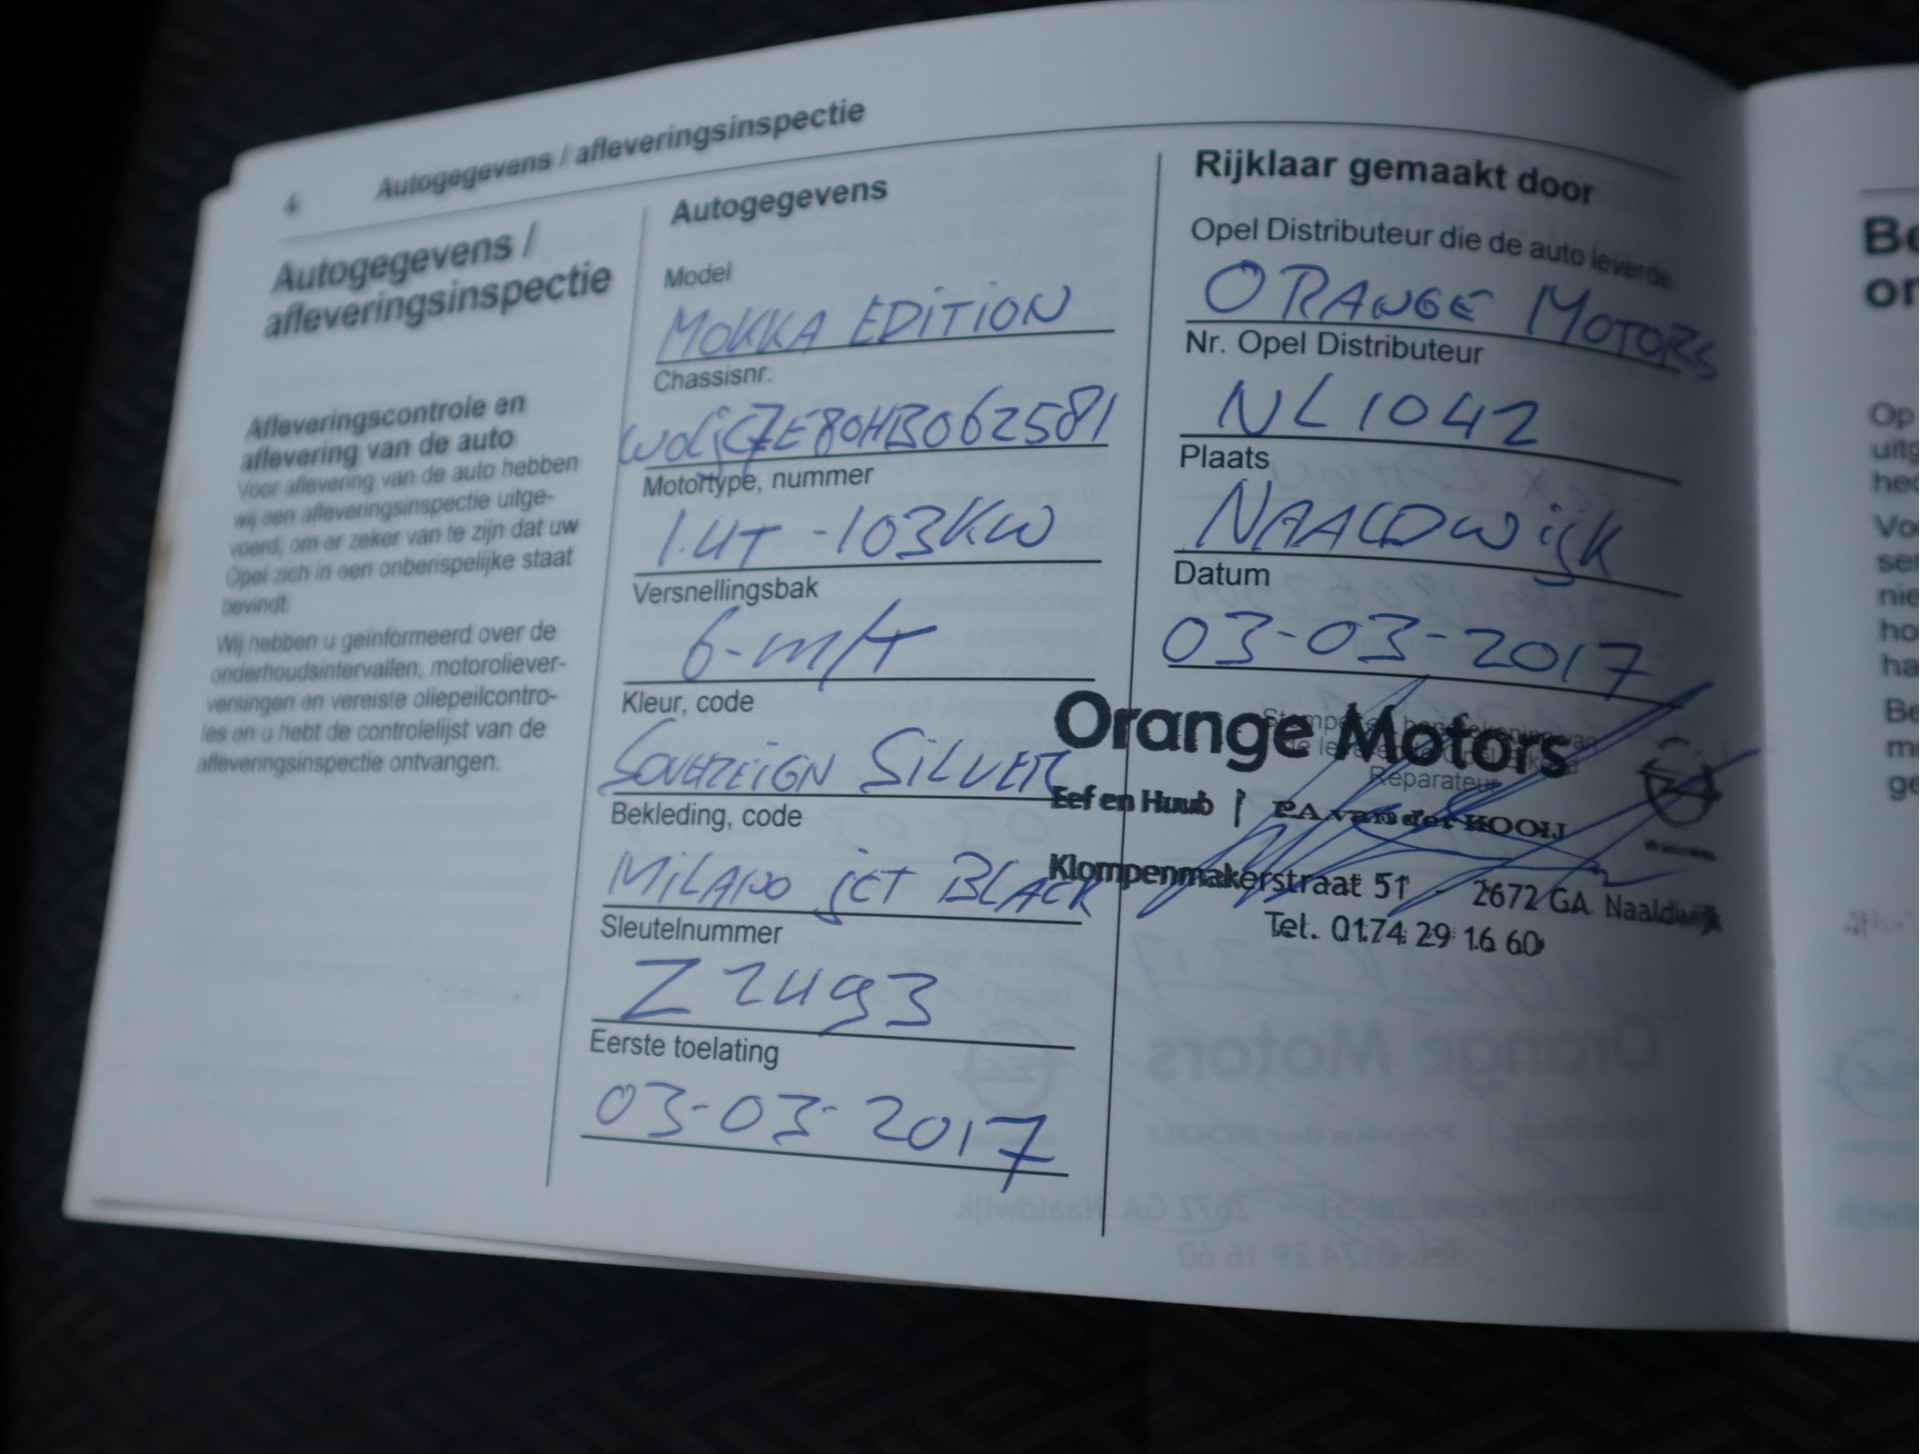 4 Autogegevens / afleveringsinspectie
Autogegevens /
afleveringsinspectie
Afleveringscontrole en
aflevering van de auto
Voor aflevering van de auto hebben
wij een afleveringsinspectie uitge-
voerd, om er zeker van te zijn dat uw
Opel zich in een onberispelijke staat
bevindt.
Wij hebben u geïnformeerd over de
onderhoudsintervallen, motoroliever-
versingen en vereiste oliepeilcontro-
les en u hebt de controlelijst van de
afleveringsinspectie ontvangen.
Autogegevens
Model
MOKKA EDITION
Chassisnr.
W0LJC7E80HB062581
Motortype, nummer
1.4T - 103KW
Versnellingsbak
6-m/T
Kleur, code
SOVEREIGN SILVER
Bekleding, code
MILANO JET BLACK
Sleutelnummer
Z2493
Eerste toelating
03-03-2017
Rijklaar gemaakt door
Opel Distributeur die de auto leverde
ORANGE MOTORS
Nr. Opel Distributeur
NL1042
Plaats
NAALDWIJK
Datum
03-03-2017
Reparateur
Orange Motors
Eef en Huub P.A. van der KOOIJ
Klompenmakerstraat 51 - 2672 GA Naaldwijk
Tel. 0174 29 16 60
Op